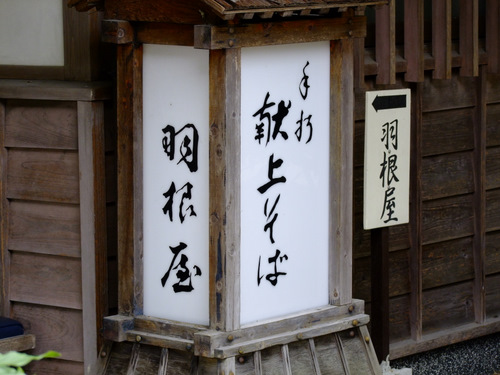 羽根屋
手打
献上そば
羽根屋